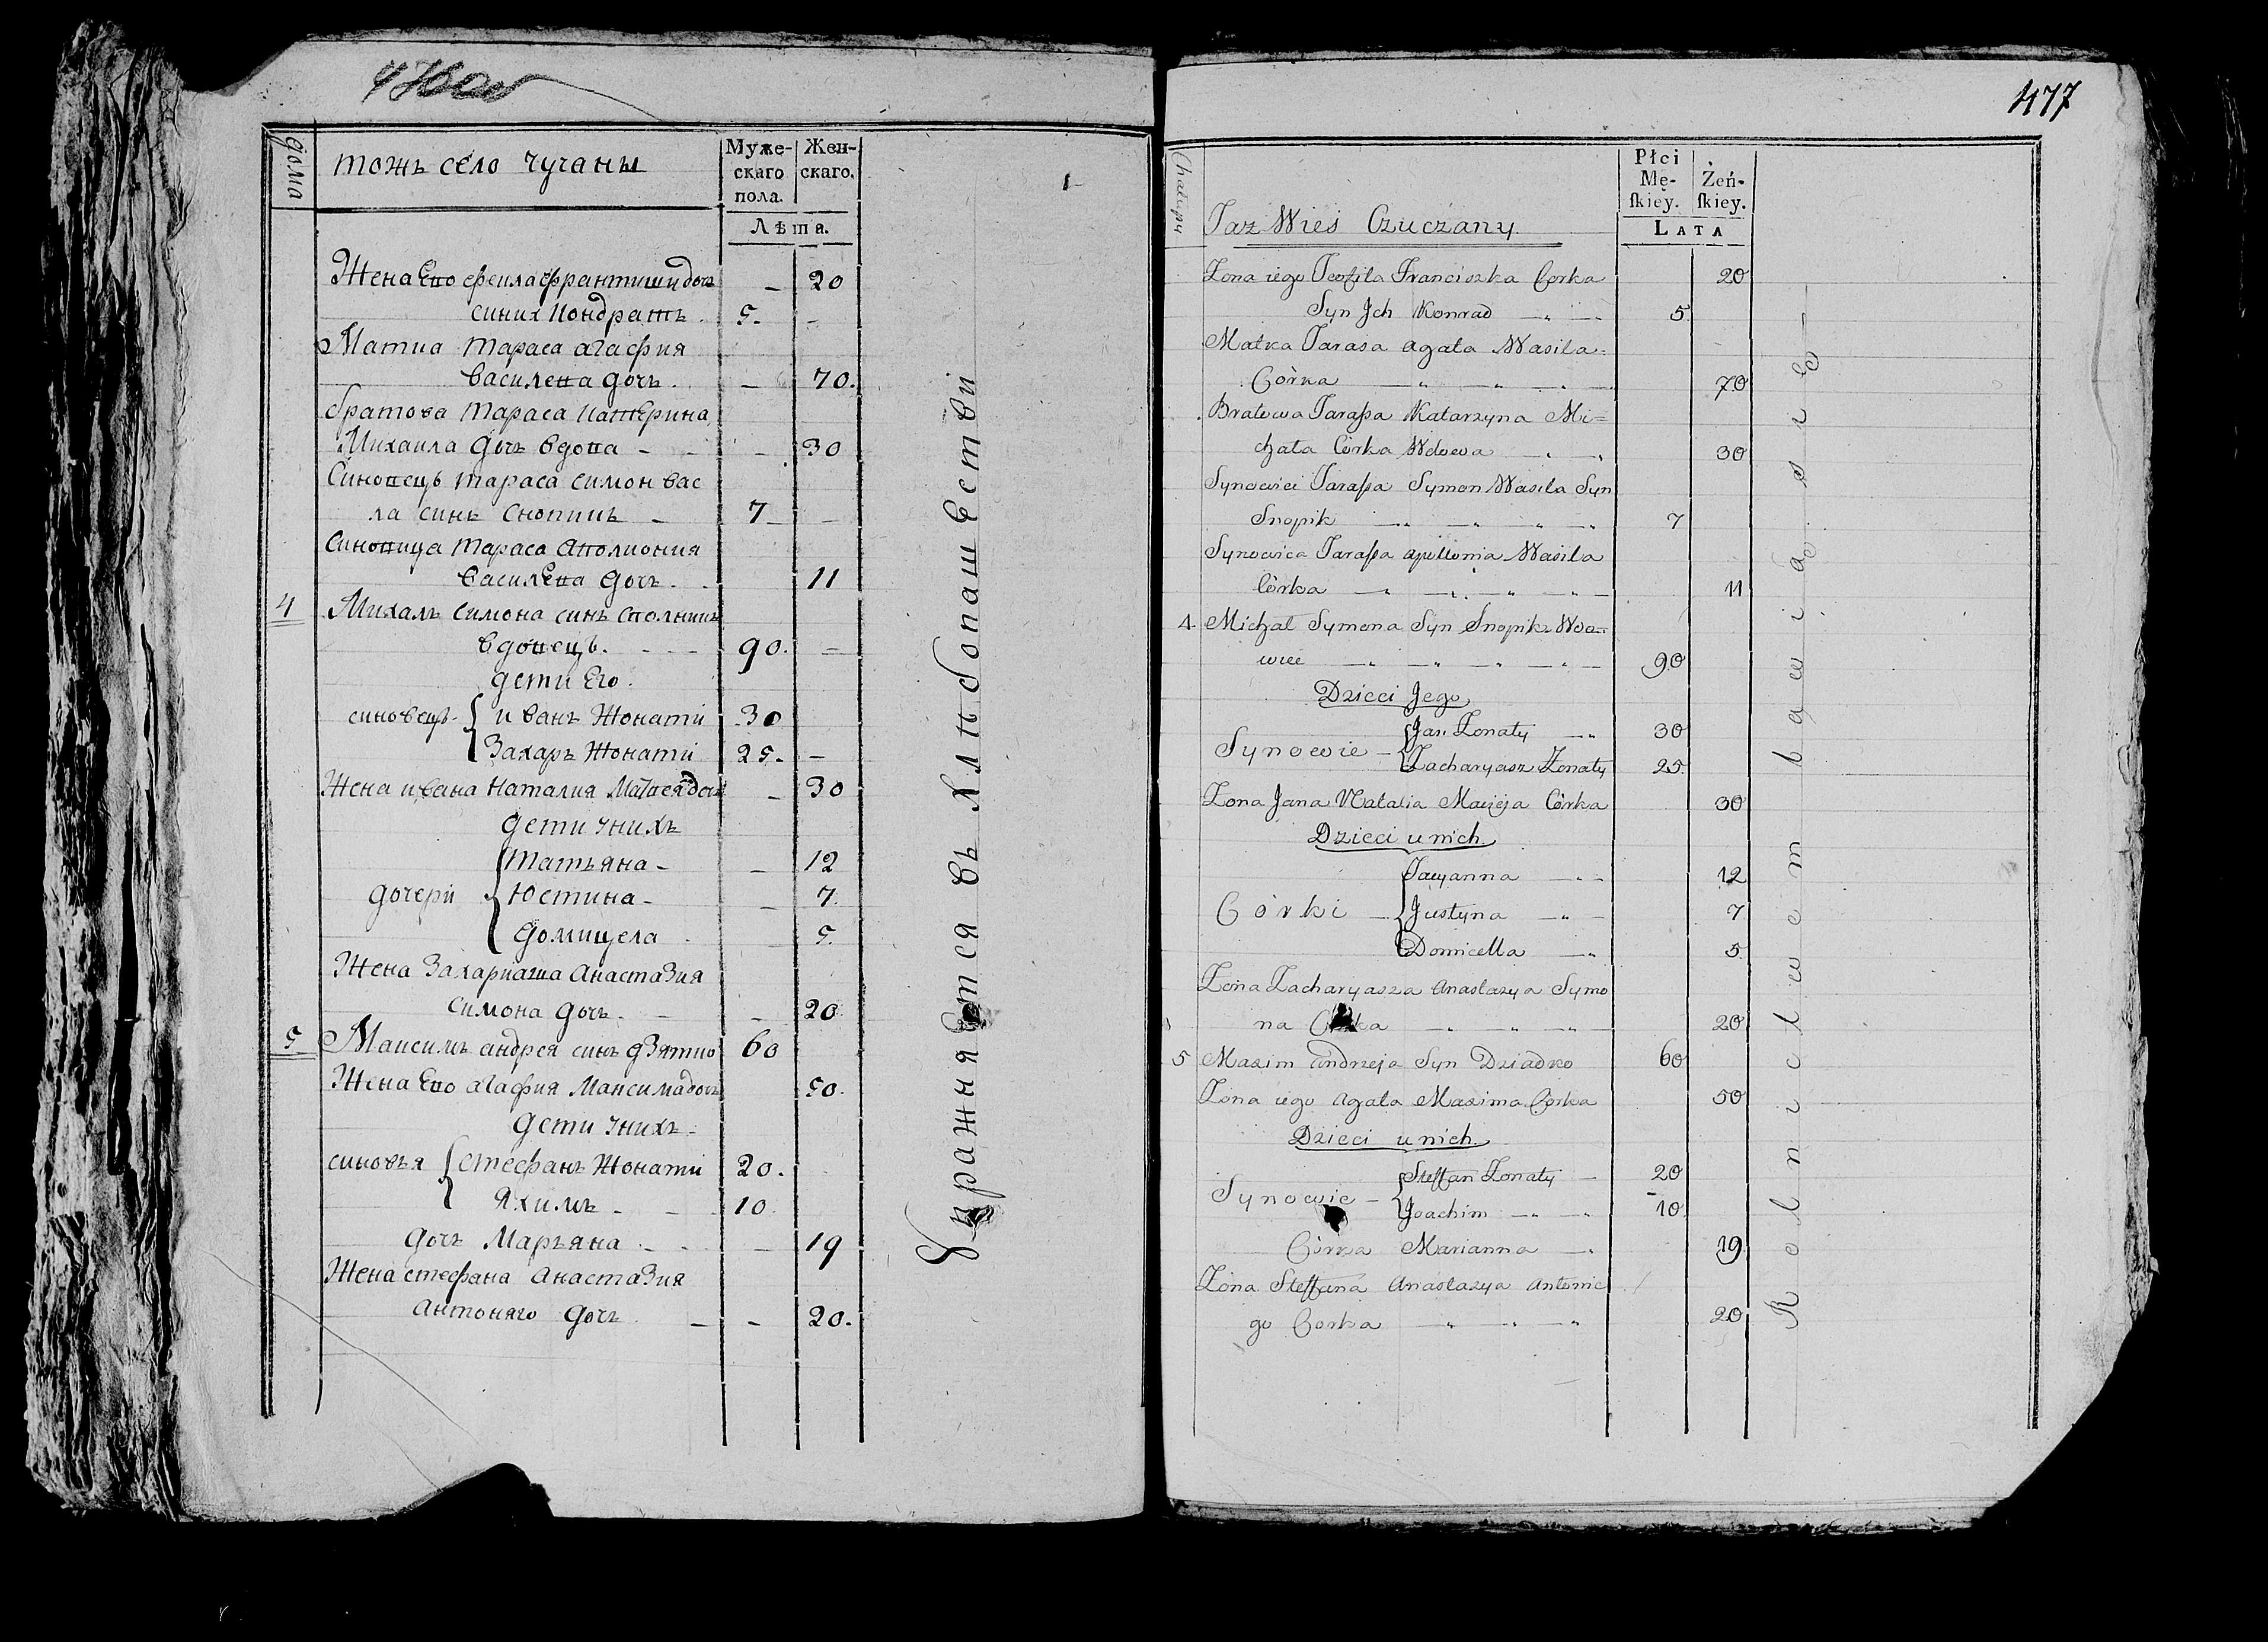 476об
дома
тожъ село Чучаны
Муже-
скаго
пола.
Жен-
скаго.
Лѣта.
Жена Его Феила Франтиши дочъ - 20
синих Кондратъ 5. -
Матка Тараса Агафия
Василева дочъ. - 70.
братова Тараса Катерина
Михаила дочъ вдова - - 30
Синовецъ Тараса Симон Вас
ла синъ Снопикъ - 7 -
Синовица Тараса Аполиония
Василева дочъ. 11
4 Михалъ Симона синъ Снопикъ
вдовецъ. - - - 90. -
дети Его.
синовецъ { иванъ Жонати 30
Захаръ Жонати 25. -
Жена ивана Наталия Матвея дочъ - 30
дети унихъ
Татьяна - - 12
дочери { Юстина - - 7.
Домицела 5.
Жена Захариаша Анастазия
Симона дочъ. - - 20
5 Максимъ Андрея синъ Дзятко 60
Жена Его Агафия Максима дочъ 50.
дети унихъ.
синовъя { Стефанъ Жонати 20.
Яхимъ - - - 10.
дочъ Маръяна - - - 19
Жена Стефана Анастазия
Антоняго дочъ. - - 20.
Упражняются въ Хлѣбопашествѣ
477
Chałupy
Taż Wieś Czuczany
Płci
Mę-
skiey.
Żeń-
skiey.
LATA
Żona iego Teofila Franciszka Corka 20
Syn Jch Konrad 5
Matka Tarasa Agata Wasila=
Córka 70
Bratowa Tarassa Katarzyna Mi=
chała Córka Wdowa 30
Synowiec Tarassa Symon Wasila Syn
Snopik 7
Synowica Tarassa Apollonia Wasila
Córka 11
4 Michał Symona Syn Snopik Wdo=
wiec 90
Dzieci Jego
Jan Żonaty 30
Synowie - { Zacharyasz Żonaty 25
Żona Jana Natalia Macieja Córka 30
Dzieci u nich
Tacyanna 12
Córki - { Justyna 7
Domicella 5
Żona Zacharyasza Anastazya Symo
na Córka 20
5 Maxim Andrzeja Syn Dziadko 60
Żona iego Agata Maxima Corka 50
Dzieci u nich.
Steffan Żonaty - 20
Synowie - { Joachim 10
Córka Marianna 19
Żona Steffana Anastazya Antonie
go Corka 20
Rolnictwem bawią się